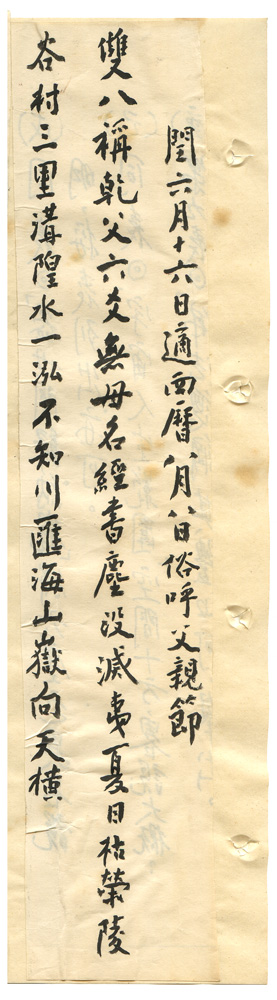 閏六月十六日適西曆八月八日俗呼父親節
雙八稱乾父六爻無母名經書塵沒滅夷夏日枯榮陵
谷村三里溝隍水一泓不知川匯海山嶽向天橫